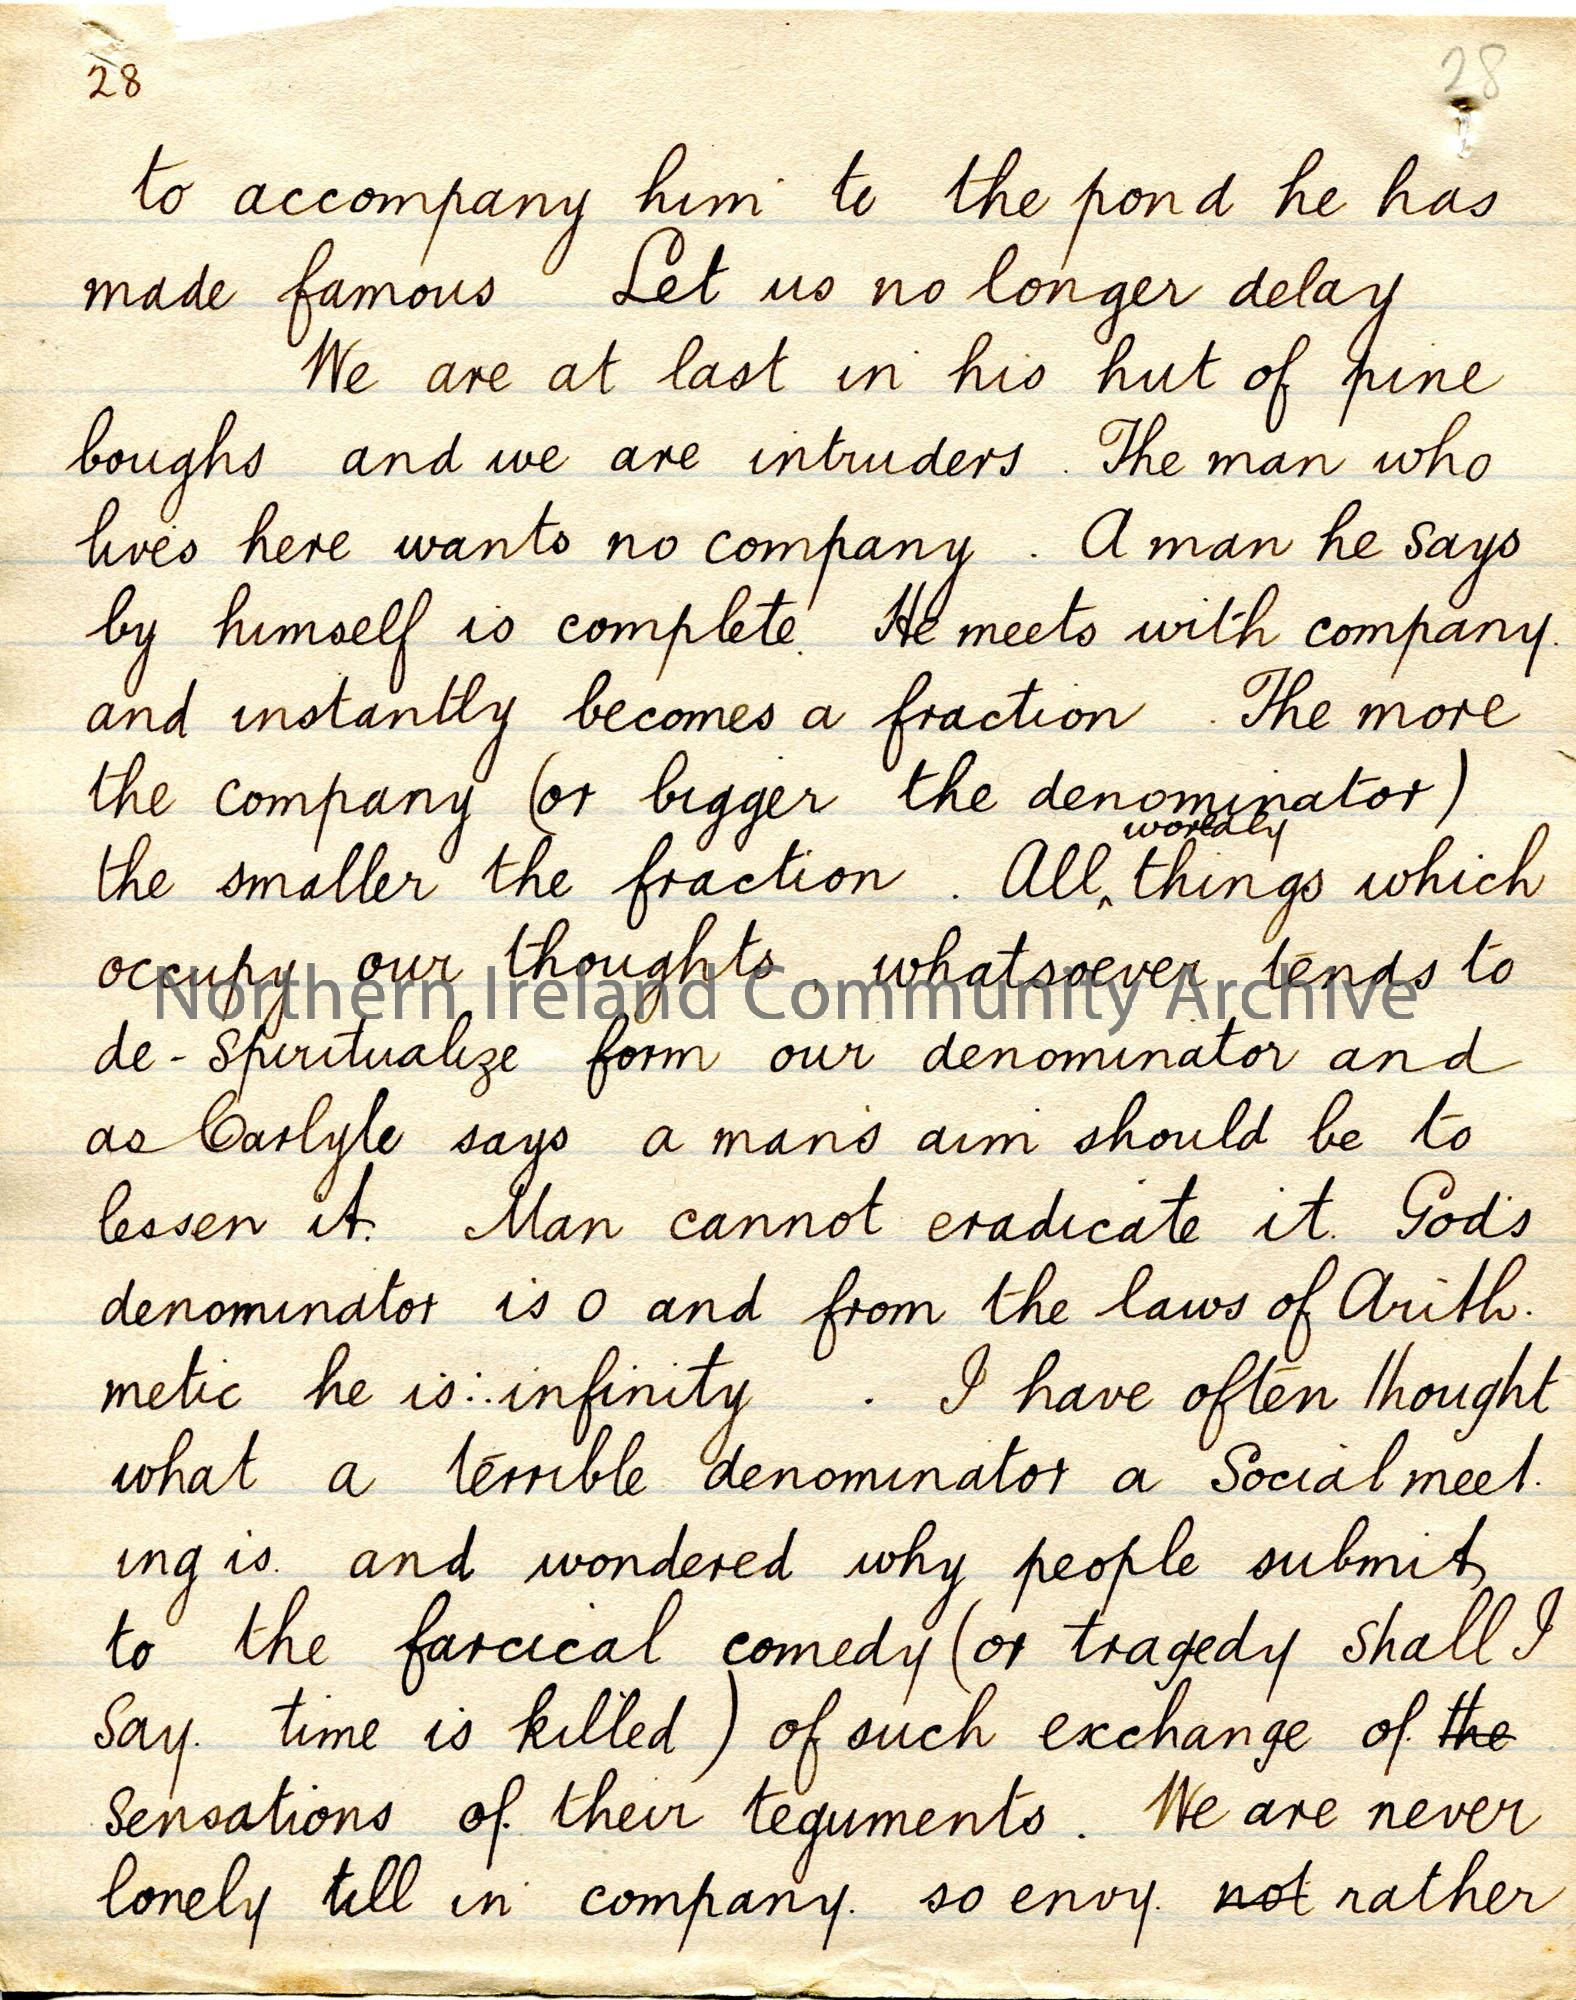 28 28
to accompany him to the pond he has
made famous Let us no longer delay
We are at last in his hut of pine
boughs and we are intruders. The man who
lives here wants no company. A man he says
by himself is complete. He meets with company.
and instantly becomes a fraction. The more
the company (or bigger the denominator)
worldly
the smaller the fraction. All, ‸ things which
occupy our thoughts, whatsoever tends to
Northern Ireland Community Archive
de-spiritualize form our denominator and
as Carlyle says a man's aim should be to
lessen it. Man cannot eradicate it. God's
denominator is 0 and from the laws of Arith.
metic he is ∴ infinity. I have often thought
what a terrible denominator a Social meet.
ing is. and wondered why people submit
to the farcical comedy (or tragedy shall I
say. time is killed) of such exchange of. the
sensations of. their teguments. We are never
lonely till in company. so envy. not rather